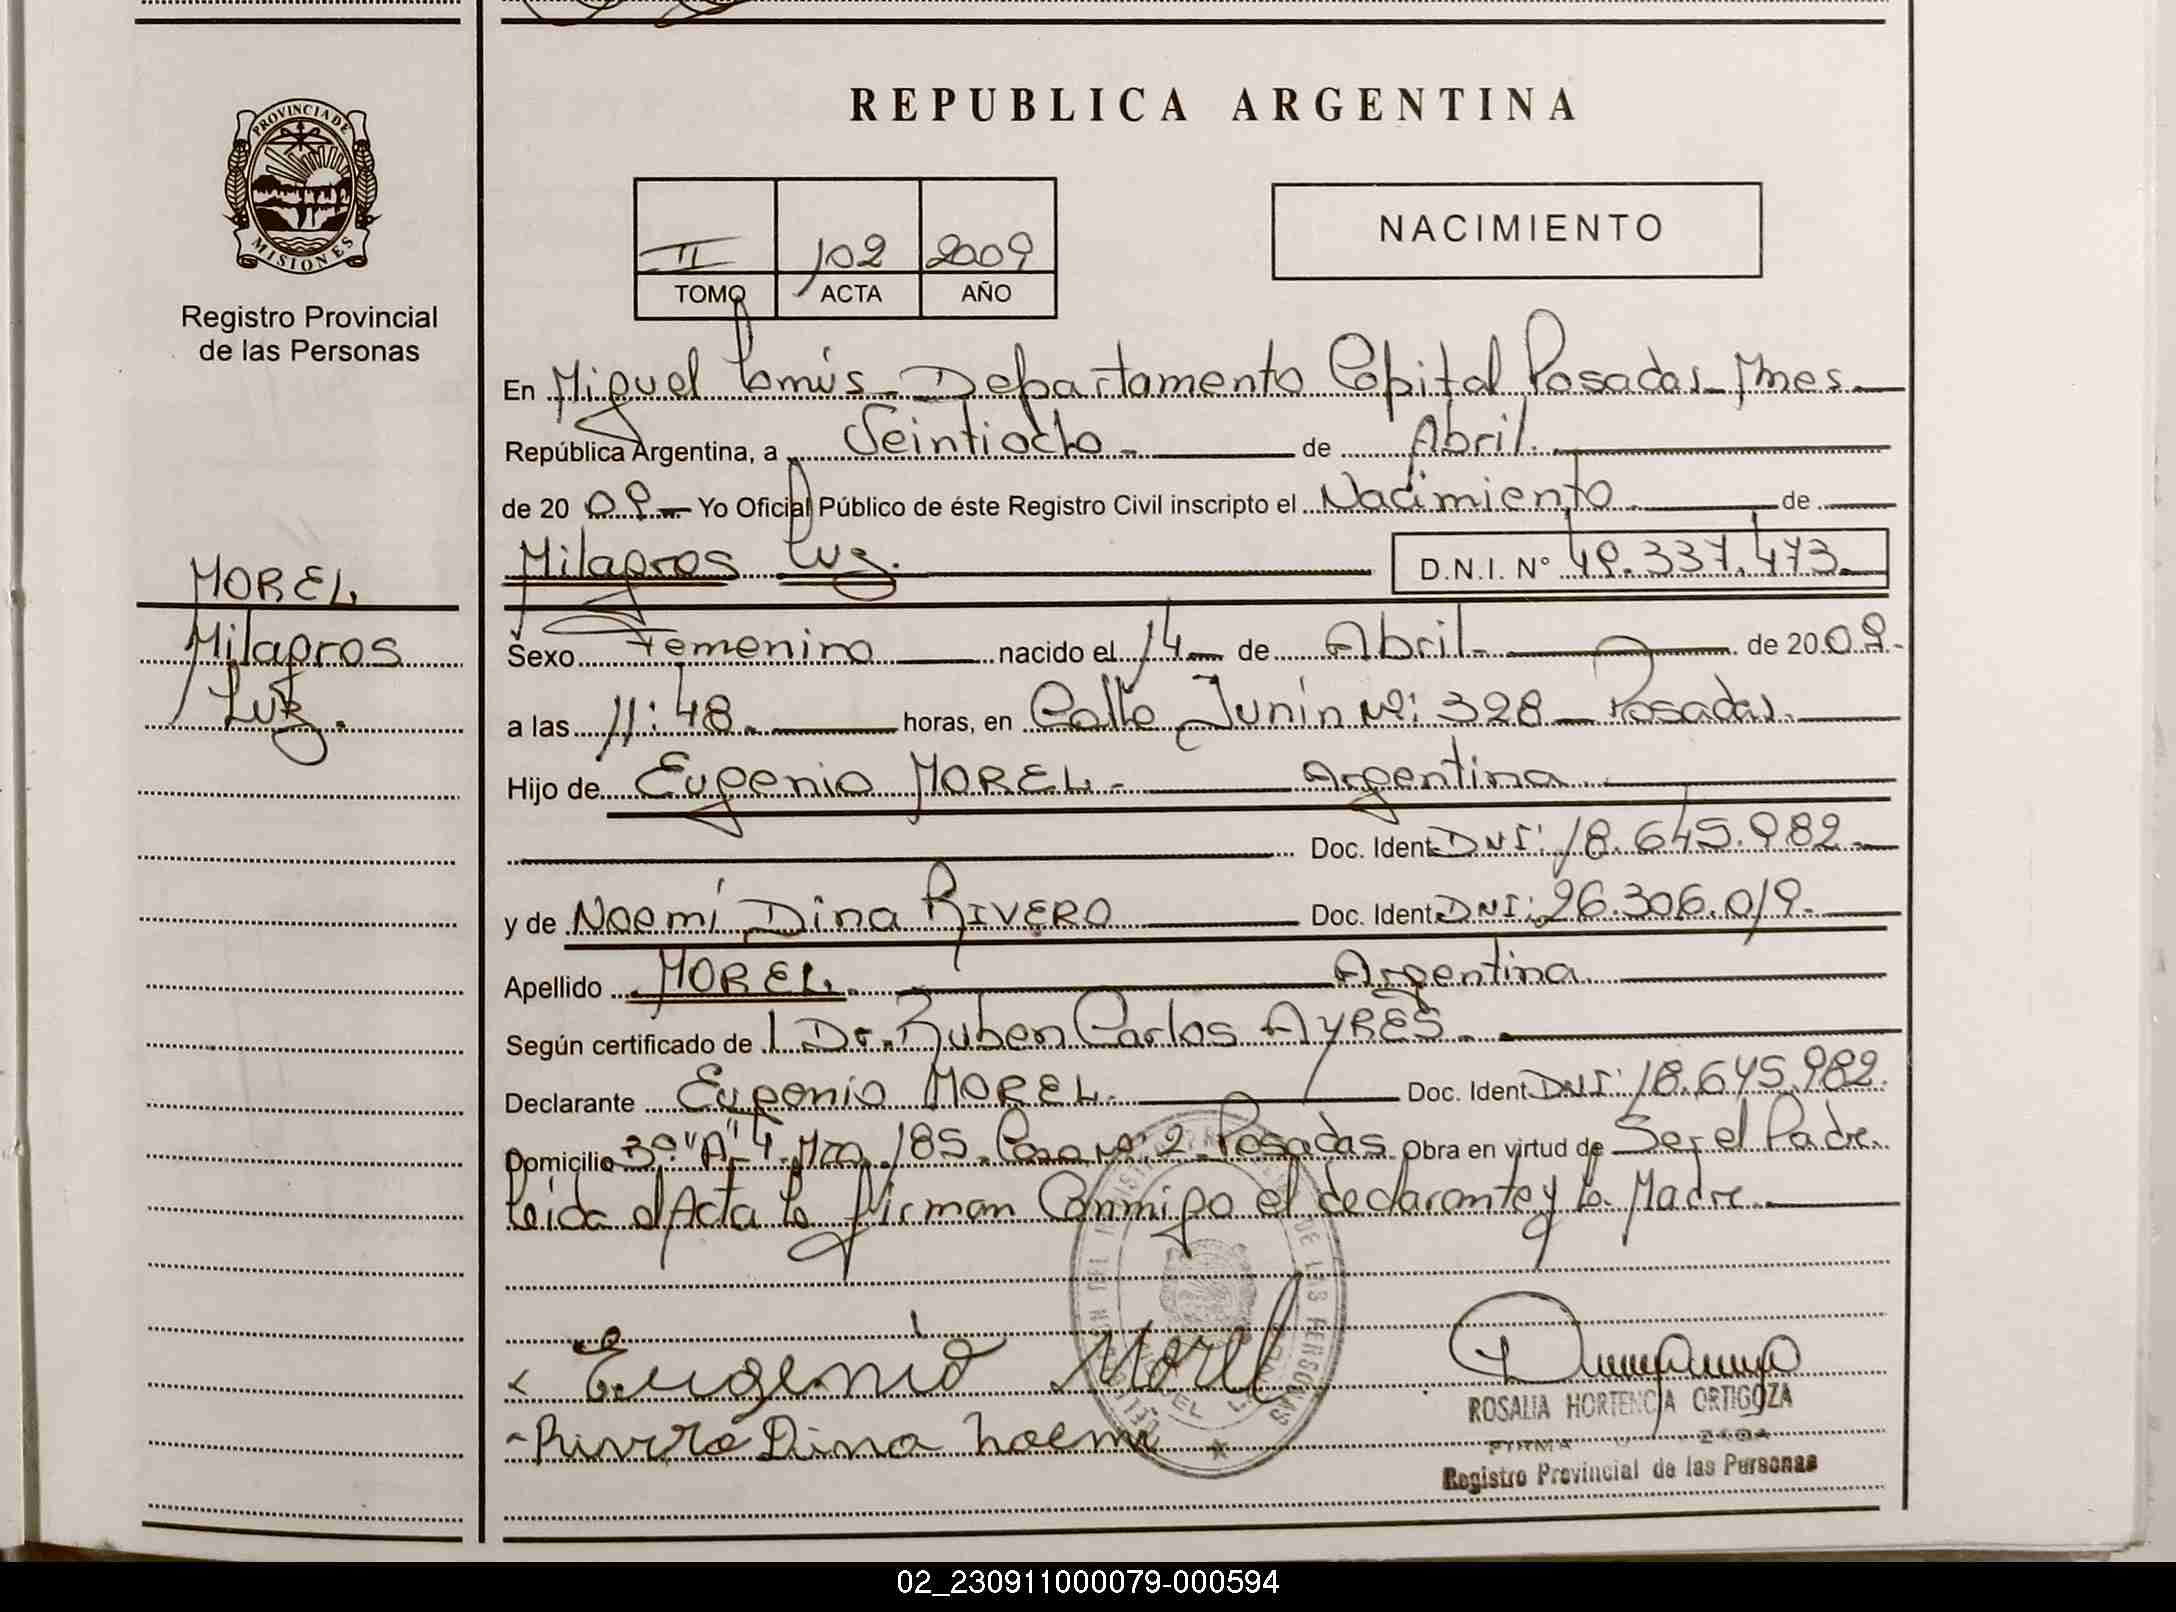 REPUBLICA ARGENTINA
PROVINCIA DE
MISIONES
Registro Provincial
de las Personas
II 102 2009
TOMO ACTA AÑO
NACIMIENTO
En Miguel Lanús - Departamento Capital Posadas - Mnes.
República Argentina, a Veintiocho - de Abril.
de 20 09 - Yo Oficial Público de éste Registro Civil inscripto el Nacimiento de
Milagros Luz. D.N.I. Nº 49.337.473.
MOREL
Milagros
Luz.
Sexo Femenino nacido el 14 - de Abril - de 20 09.-
a las 11:48. horas, en Calle Junín Nº: 328 - Posadas.
Hijo de Eugenio MOREL - Argentina.
Doc. Ident. DNI: 18.645.982.-
y de Noemí Dina RIVERO Doc. Ident. DNI: 26.306.019.-
Apellido MOREL. Argentina.
Según certificado de l Dr. Ruben Carlos AYRES.
Declarante Eugenio MOREL. Doc. Ident. DNI: 18.645.982.
Domicilio 3º "A" 4 Mza 185. Casa Nº 2 - Posadas Obra en virtud de Ser el Padre.
Leida el Acta la firman Conmigo el declarante y la Madre.
Eugenio Morel
Rivero Dina Noemi
ROSALIA HORTENCIA ORTIGOZA
Registro Provincial de las Personas
DE LAS PERSONAS
02_230911000079-000594